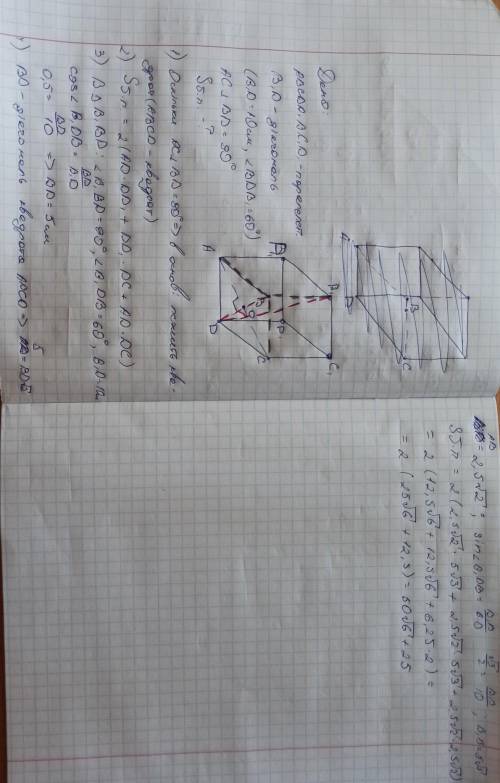 Дано:
ABCDA₁B₁C₁D₁ - паралелеп.
B₁D - діагональ
(B₁D = 10 см, ∠BDB₁ = 60°)
AC ∠ BD = 90°
Sб.п - ?
1) Оскільки AC ∠ BD = 90° => в основі лежить ква-
драт (ABCD - квадрат)
2) Sб.п = 2 (AD·DD₁ + DD₁·DC + AD·DC)
3) B ΔB₁BD: ∠B₁BD = 90°, ∠B₁DB = 60°, B₁D=10см
cos∠B₁DB = BD/B₁D
0,5 = BD/10 => BD = 5 см
4) BD - діагональ квадрата ABCD => = 5
AB = 2,5√2; sin∠B₁DB = √3/2 = /10;
Sб.п = 2 (2,5√2·5√3 + 2,5√2·5√3 + 2,5√2·2,5√2)
= 2 (12,5√6 + 12,5√6 + 6,25·2) =
= 2 (25√6 + 12,5) = 50√6 + 25
A
B
C
D
A
B₁
A₁
B
O
D
C
D₁
C₁